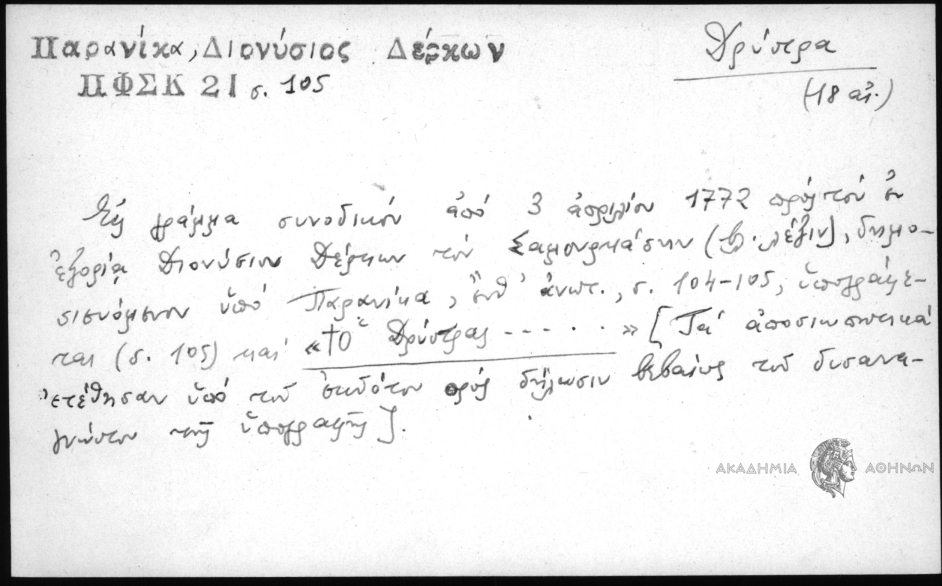 Παρανίκα, Διονύσιος Δέρκων
ΠΦΣΚ 21 σ. 105
Δρύστρα
(18 αἰ.)
Εἰς γράμμα συνοδικόν ἀπό 3 ἀπριλίου 1772 πρός τόν ἐν
ἐξορίᾳ Διονύσιον Δέρκων τόν (β. λέξιν), δημο-
σιευόμενον ὑπό Παρανίκα, ἔνθ' ἀνωτ., σ. 104-105, ὑπογράφε-
ται (σ. 105) καί «†Ὁ Δρύστρας ----- . .» [Τά ἀποσιωπητικά
ἐτέθησαν ὑπό τοῦ ἐκδότου πρός δήλωσιν βεβαίως τοῦ δυσανα-
γνώστου τῆς ὑπογραφῆς].
ΑΚΑΔΗΜΙΑ ΑΘΗΝΩΝ